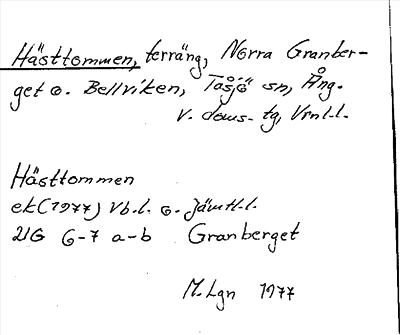 Hästtommen, terräng, Norra Granber-
get o. Bellviken, Tåsjö sn, Ång.
v. doms- tg, Vrnl.l.
Hästtommen
ek (1977) Vb.l. o. Jämtl.l.
21G 6-7 a-b Granberget
M.Lgn 1977